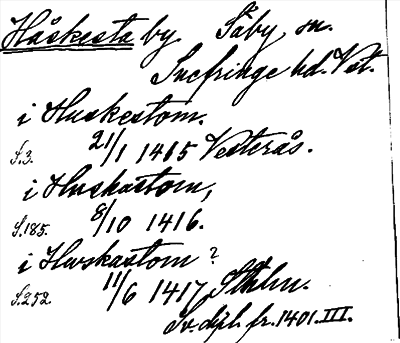 Håskesta by, Säby sn.
Snefringe hd. Vst.
i Huskestom.
S.3. 21/1 1415 Vesterås.
i Huskastom,
S.185. 8/10 1416.
i Huskastom?
S.252. 11/6 1417, Sthlm.
Sv. dipl. fr. 1401. III.